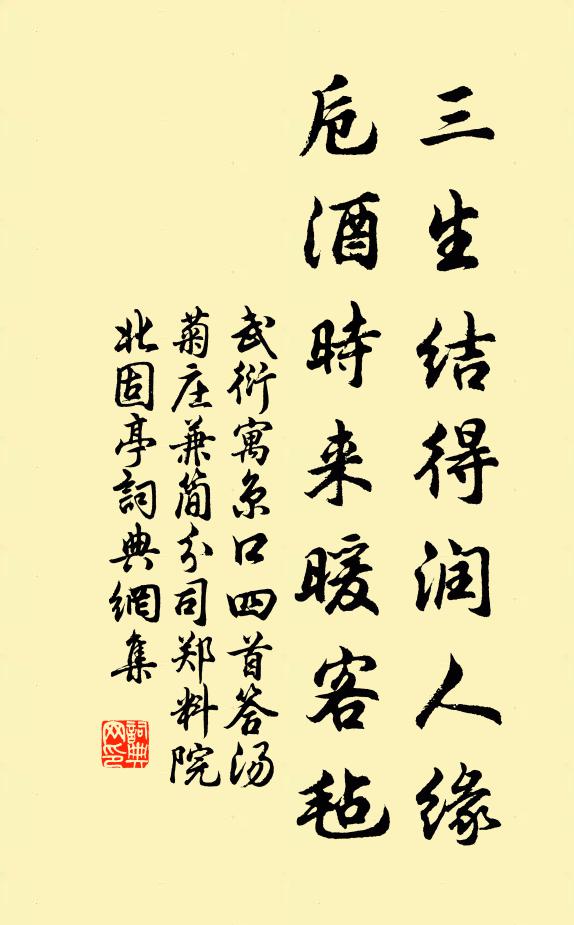 三生结得润人缘
卮酒時来暖客毡
武衍寓京口四首答汤
菊庄兼简分司郑料院
北固亭詞典網集
詞典網印